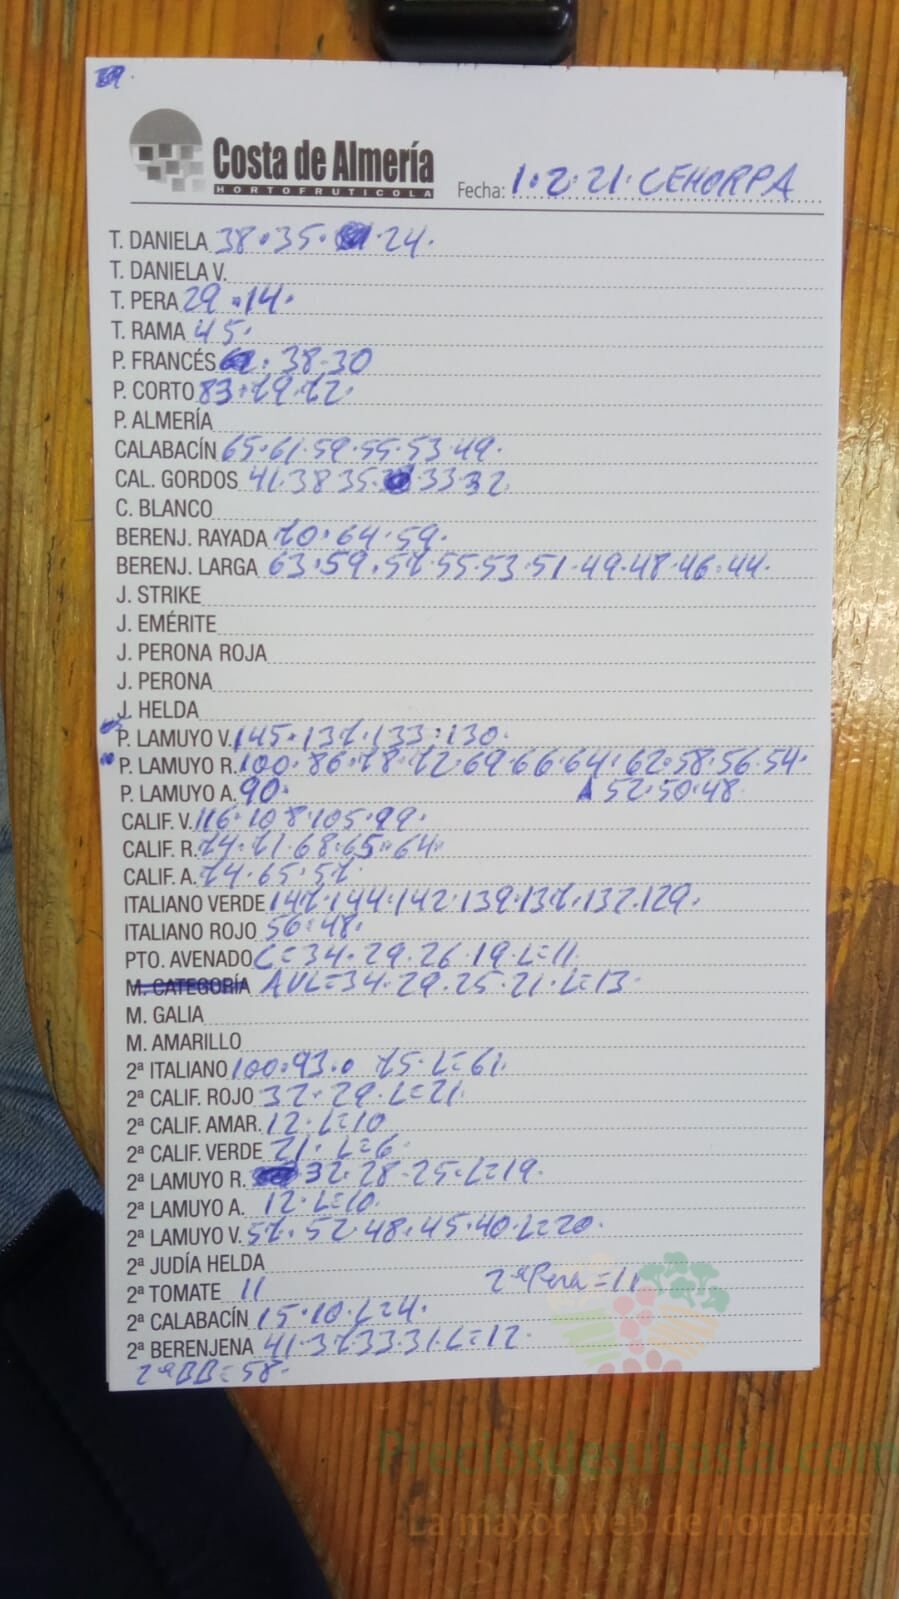 Costa de Almería
HORTOFRUTICOLA
Fecha: 1.2.21. CEHORPA
T. DANIELA 38.35. .24.
T. DANIELA V.
T. PERA 29.14.
T. RAMA 45.
P. FRANCÉS . 38-30
P. CORTO 83.79.72.
P. ALMERÍA
CALABACÍN 65.61.59.55.53.49.
CAL. GORDOS 41.38 35. .33.32.
C. BLANCO
BERENJ. RAYADA 70.64.59.
BERENJ. LARGA 63.59.57.55.53.51.49.48.46.44.
J. STRIKE
J. EMÉRITE
J. PERONA ROJA
J. PERONA
J. HELDA
P. LAMUYO V. 145.137.133.130.
P. LAMUYO R. 100.86.78.72.69.66.64.62.58.56.54.
P. LAMUYO A. 90. 52.50.48.
CALIF. V. 116.108.105.99.
CALIF. R. 74.71.68.65.64.
CALIF. A. 74.65.57.
ITALIANO VERDE 147.144.142.139.137.132.129.
ITALIANO ROJO 56.48.
PTO. AVENADO C=34.29.26.19.L=11
M. CATEGORÍA AVL=34.29.25.21.L=13.
M. GALIA
M. AMARILLO
2ª ITALIANO 100.93. 75.L=61.
2ª CALIF. ROJO 32.29.L=21.
2ª CALIF. AMAR. 12.L=10
2ª CALIF. VERDE 21. L=6.
2ª LAMUYO R. 32.28.25.L=19.
2ª LAMUYO A. 12.L=10.
2ª LAMUYO V. 57.52.48.45.40.L=20.
2ª JUDÍA HELDA
2ª TOMATE 11 2ªPera=11
2ª CALABACÍN 15.10.L=4.
2ª BERENJENA 41.37.33.31.L=12.
2ªBB=58.
Preciosdesubasta.com
La mayor web de hortalizas